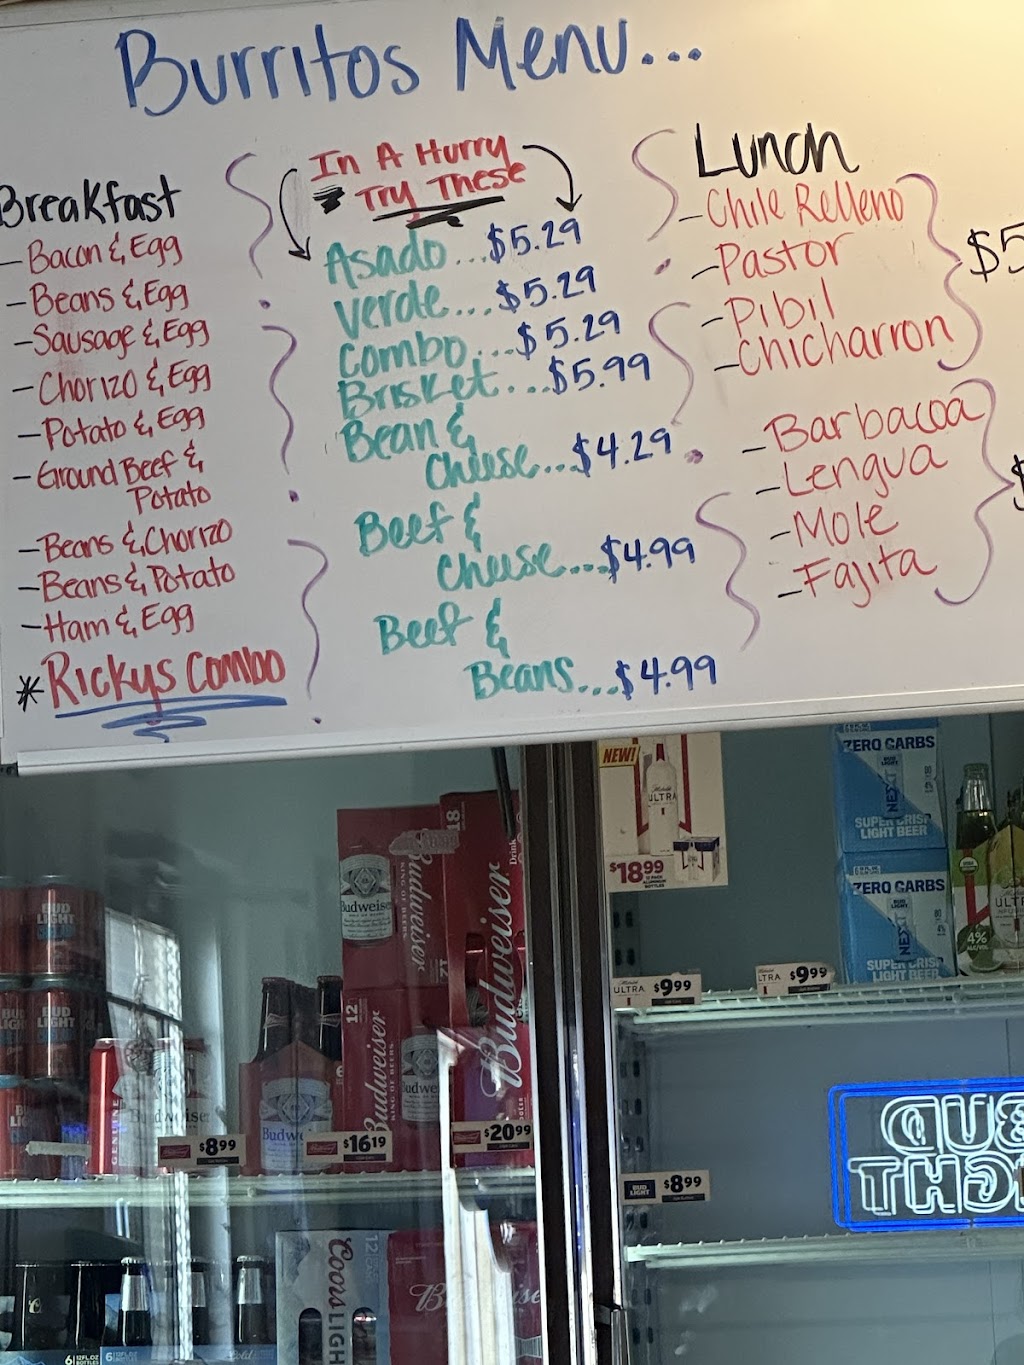 Burritos Menu...
Breakfast
- Bacon & Egg
- Beans & Egg
- Sausage & Egg
- Chorizo & Egg
- Potato & Egg
- Ground Beef &
Potato
- Beans & Chorizo
- Beans & Potato
- Ham & Egg
* Rickys Combo
In A Hurry
Try These
Asado...$5.29
Verde...$5.29
Combo...$5.29
Brisket...$5.99
Bean &
Cheese...$4.29
Beef &
Cheese...$4.99
Beef &
Beans...$4.99
Lunch
- Chile Relleno
- Pastor
- Pibil
- Chicharron
$5
- Barbacoa
- Lengua
- Mole
- Fajita
$
NEW!
ULTRA
$18.99
ZERO CARBS
BUD LIGHT
NEXT
SUPER CRISP
LIGHT BEER
ZERO CARBS
BUD LIGHT
NEXT
SUPER CRISP
LIGHT BEER
4%
ULTRA
$9.99
$9.99
18
Budweiser
Budweiser
Budweiser
12
Budweiser
KING OF BEERS
BUD LIGHT
BUD LIGHT
Budweiser
$8.99
$16.19
$20.99
BUD LIGHT
$8.99
BUD
IGHT
Coors LIGH
12